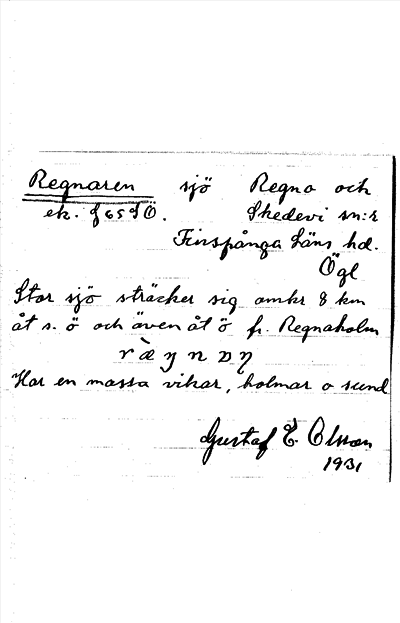 Regnaren sjö Regna och
ek. f 65 SÖ. Skedevi sn:r
Finspånga Läns hd.
Ögl
Stor sjö sträcker sig omkr 8 km
åt s. ö och även åt ö fr. Regnaholm
Har en massa vikar, holmar o sund
Gustaf E. Olsson
1931